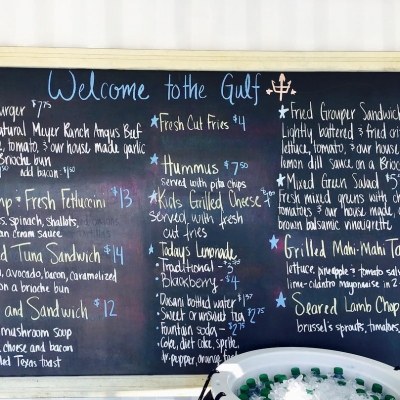 Welcome to the Gulf
urger $7.75
atural Meyer Ranch Angus Beef
e, tomato, & our house made garlic
Brioche bun
add bacon $1.50
mp & Fresh Fettuccini $13
s, spinach, shallots,
an cream sauce
d Tuna Sandwich $14
, avocado, bacon, caramelized
on a brioche bun
and Sandwich $12
mushroom soup
, cheese and bacon
led Texas toast
Fresh Cut Fries $4
Hummus $7.50
served with pita chips
Kids Grilled Cheese
Served with fresh
cut fries
Today's Lemonade
Traditional -
Blackberry $4
Dasani bottled water
Sweet or unsweet tea
Fountain soda -
Coke, diet coke, sprite,
dr. pepper, orange
Fried Grouper Sandwich
Lightly battered & fried
lettuce, tomato, & our house
lemon dill sauce on a Brio
Mixed Green Salad $5
Fresh mixed greens with
tomatoes & our house made
brown balsamic vinaigrette
Grilled Mahi-Mahi Ta
lettuce, pineapple & tomato sals
lime-cilantro mayonnaise in 2
Seared Lamb Chop
brussel's sprouts, tomatoes,